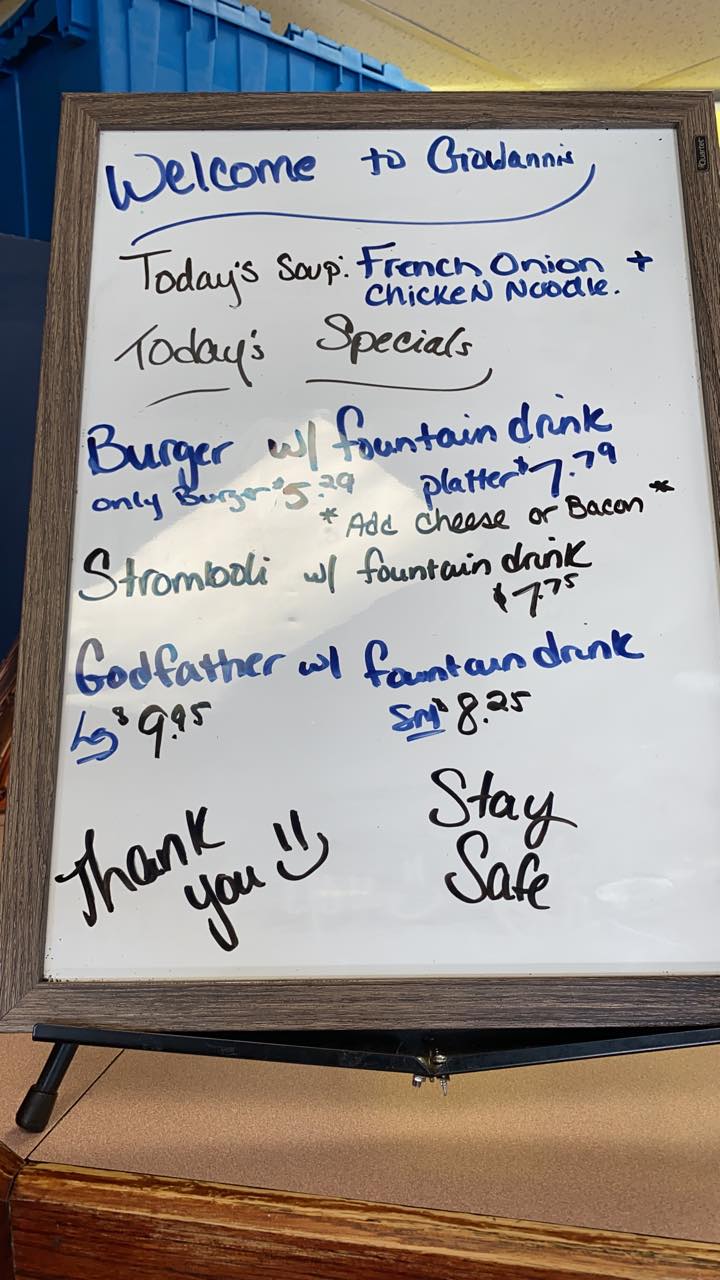 Welcome to Giovannis
Today's Soup: French Onion +
Chicken Noodle.
Today's Specials
Burger w/ fountain drink
only Burger $5.29 platter $7.79
* Add cheese or Bacon *
Stromboli w/ fountain drink
$7.75
Godfather w/ fountain drink
Lg $9.95 Sm $8.25
Thank you
Stay
Safe
Quartet